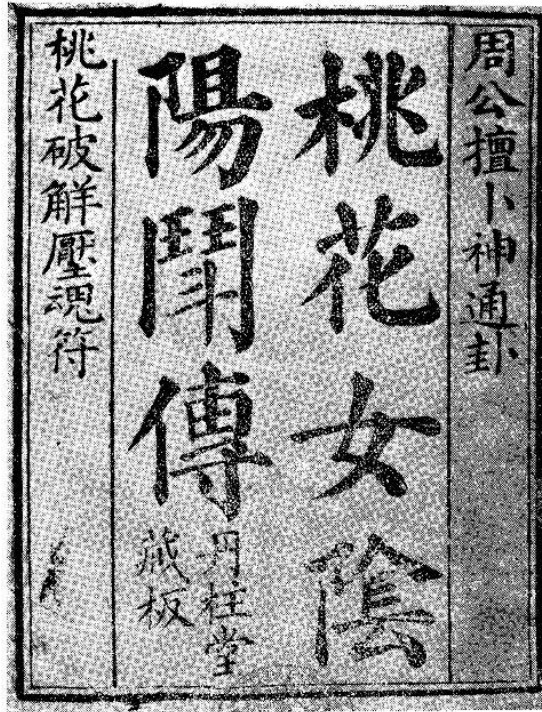 周公擅卜神通卦
桃花女陰
陽鬪傳
丹柱堂
藏板
桃花破解壓魂符